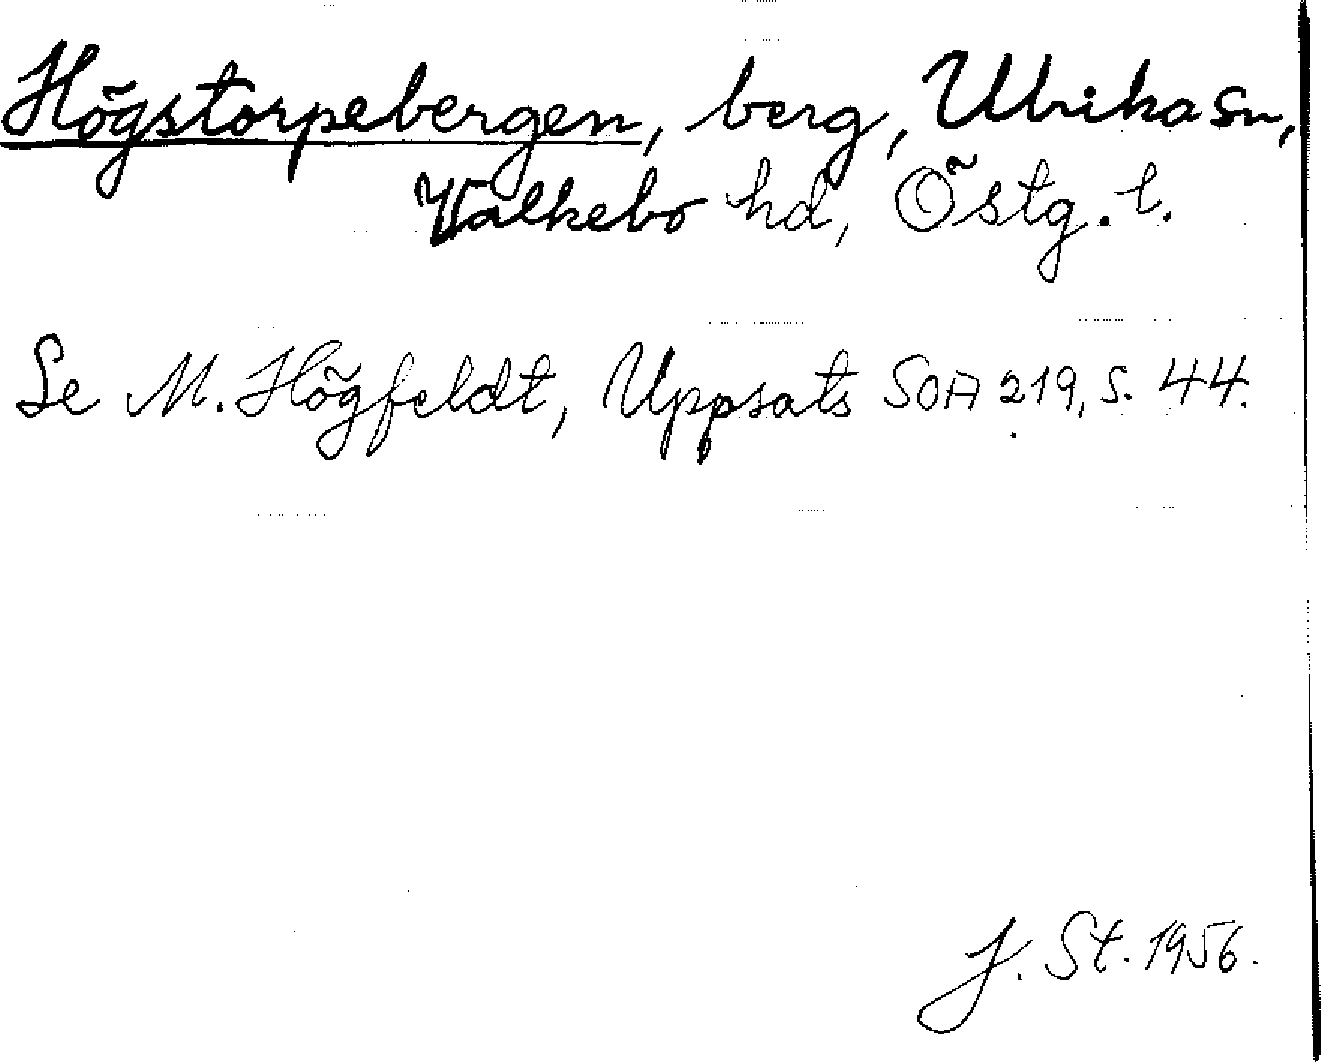 Högstorpebergen, berg, Ulrika sn,
Valkebo hd, Östg. l.
Se M. Högfeldt, Uppsats SOA 219, s. 44.
J. St. 1956.